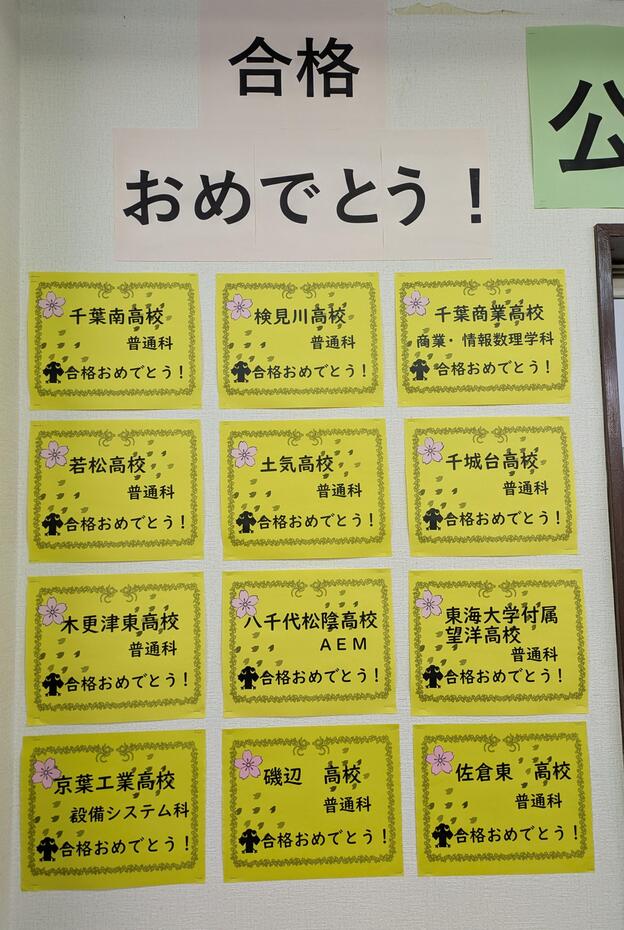 合格
おめでとう！
公
千葉南高校
普通科
合格おめでとう！
検見川高校
普通科
合格おめでとう！
千葉商業高校
商業・情報数理学科
合格おめでとう！
若松高校
普通科
合格おめでとう！
土気高校
普通科
合格おめでとう！
千城台高校
普通科
合格おめでとう！
木更津東高校
普通科
合格おめでとう！
八千代松陰高校
ＡＥＭ
合格おめでとう！
東海大学付属
望洋高校
普通科
合格おめでとう！
京葉工業高校
設備システム科
合格おめでとう！
磯辺　高校
普通科
合格おめでとう！
佐倉東　高校
普通科
合格おめでとう！